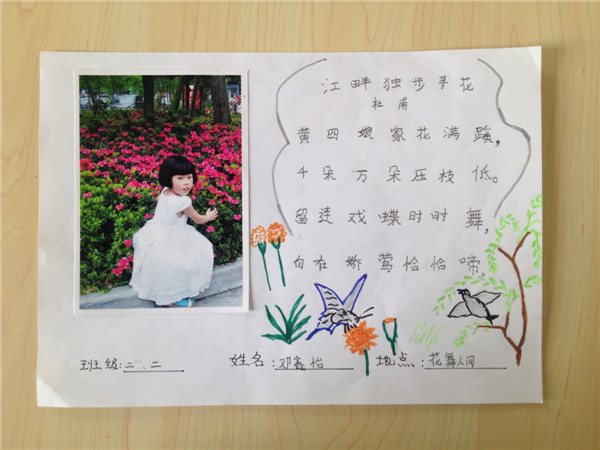 江畔独步寻花
杜甫
黄四娘家花满蹊,
千朵万朵压枝低。
留连戏蝶时时舞,
自在娇莺恰恰啼。
班级:二、二 姓名:邓鑫怡 地点:花舞人间